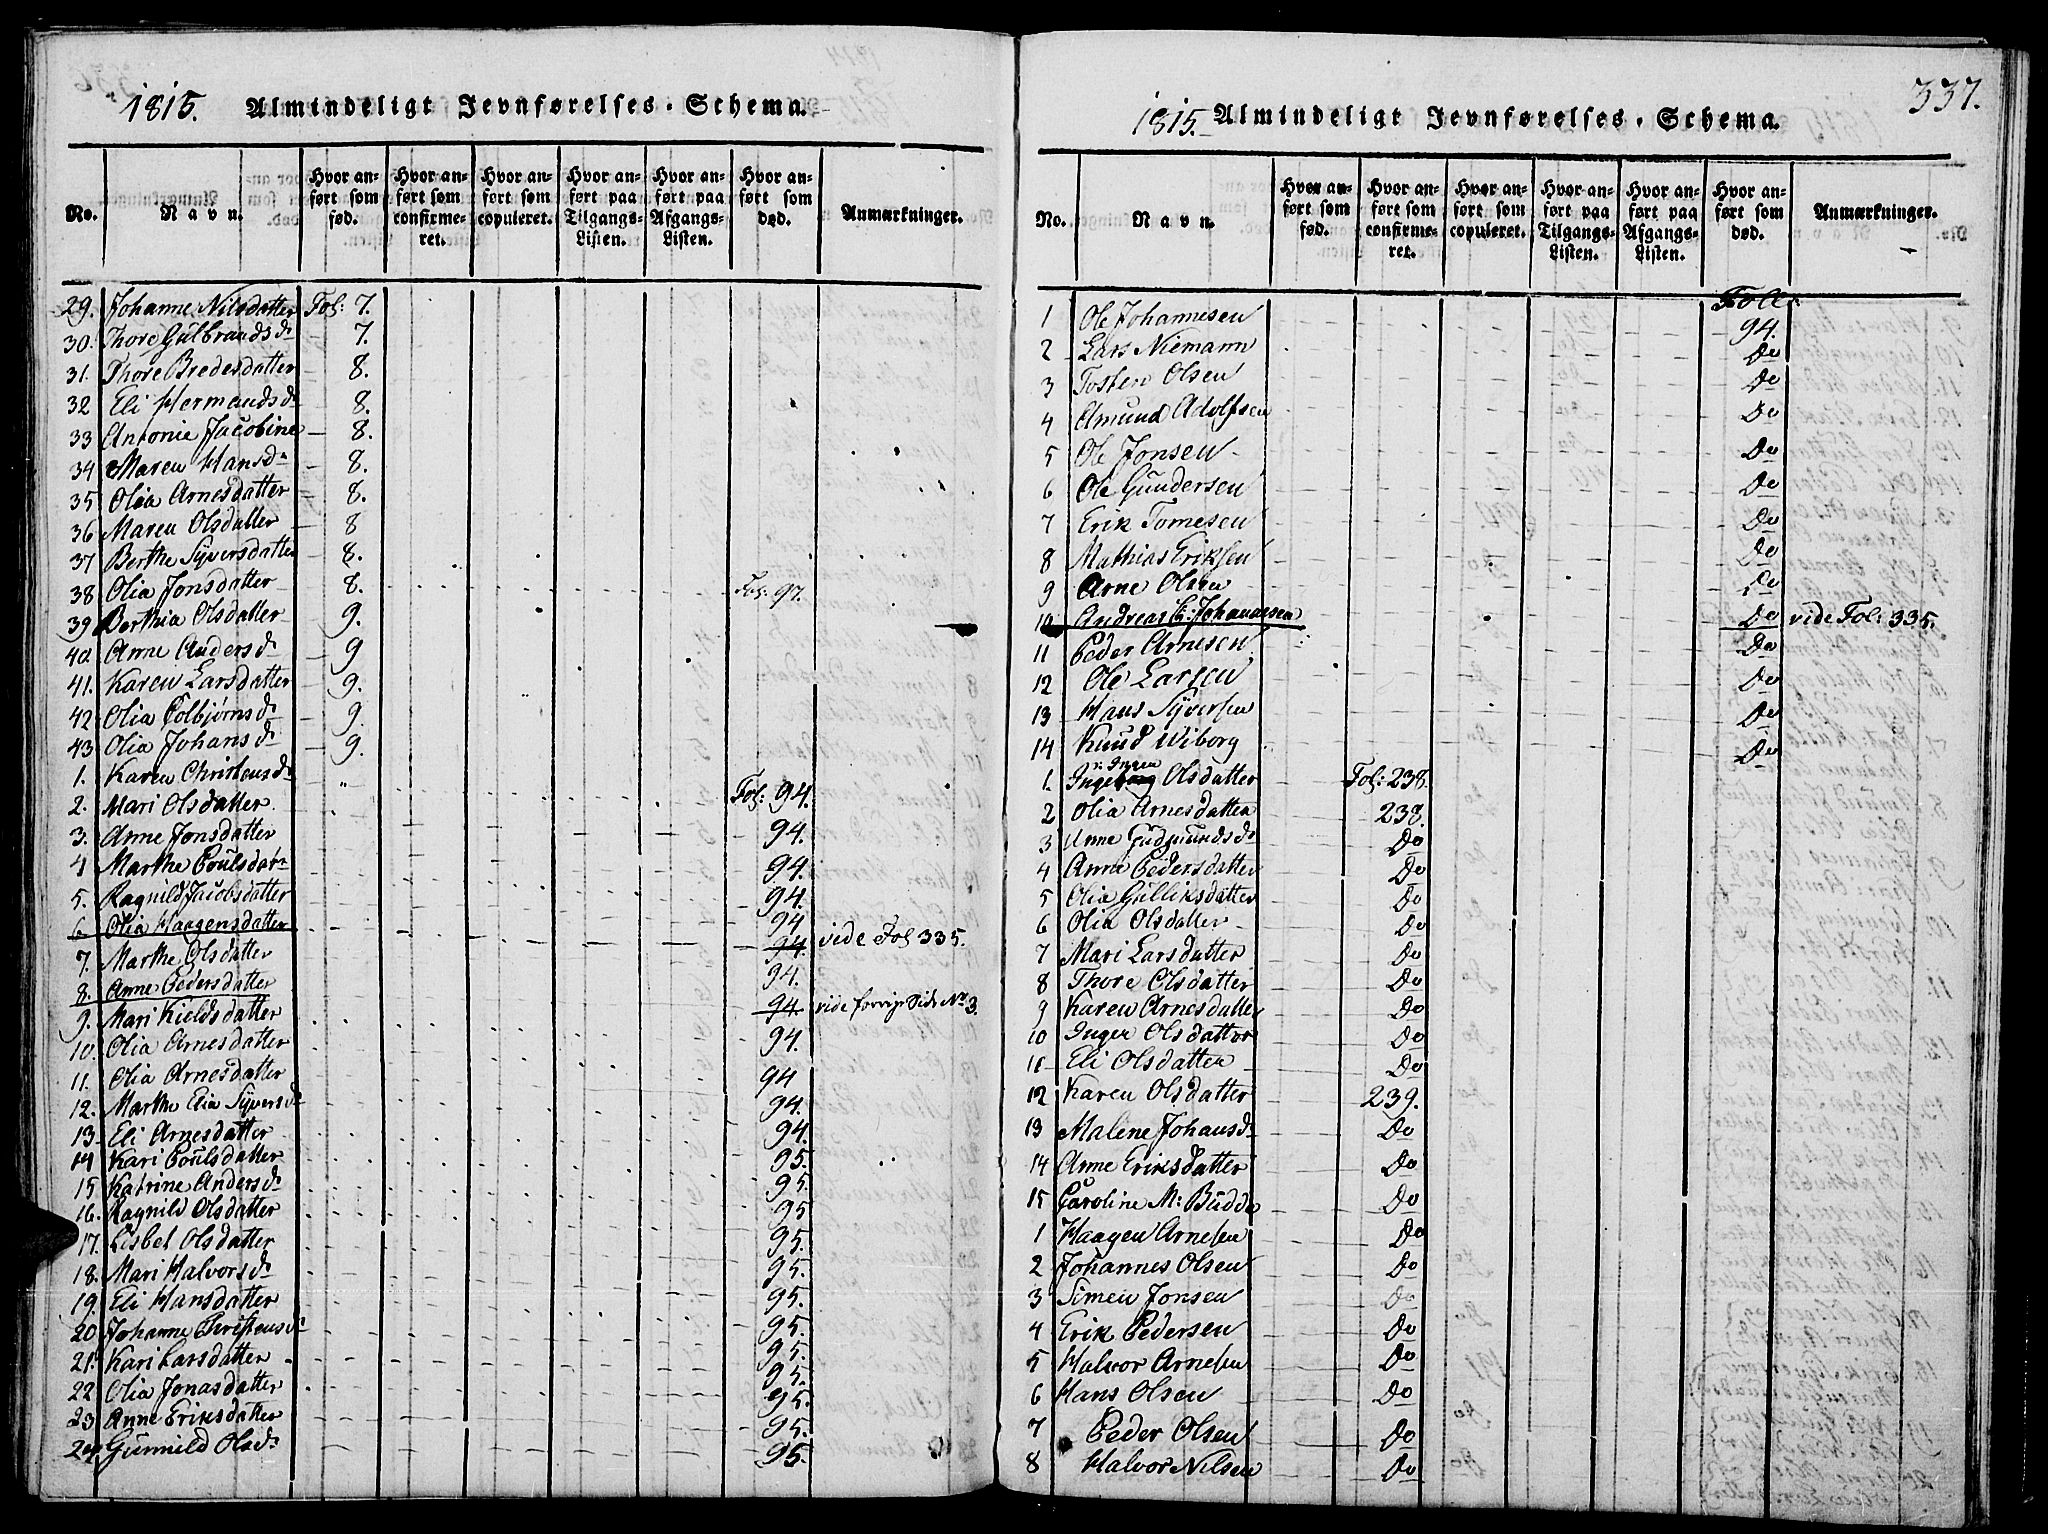 1815. Almindeligt Jevnførelses-Schema.
No. Navn. Hvor anført som fød. Hvor anført som confirmeret. Hvor anført som copuleret. Hvor anført paa Tilgangs-Listen. Hvor anført paa Afgangs-Listen. Hvor anført som død. Anmærkninger.
29. Johanne Nilsdatter Fol: 7.
30. Thore Gulbrandsdr 7.
31. Thore Bredesdatter 8.
32 Eli Hermandsdr 8.
33 Antonie Jacobine 8.
34 Maren Hansdr 8.
35 Olia Arnesdatter 8.
36 Maren Olsdatter 8
37 Berthe Syversdatter 8.
38 Olia Jonsdatter 8. Fol: 97.
39 Berthia Olsdatter 9.
40 Anne Andersdr 9
41. Karen Larsdatter 9.
42 Olia Colbjørnsdr 9.
43 Olia Johansdr 9.
1. Karen Christensdr Fol: 94.
2. Mari Olsdatter 94.
3. Anne Jonsdatter 94.
4 Marthe Poulsdatr 94.
5. Ragnild Jacobsdatter 94
6 Olia Haagensdatter 94. vide Fol 335.
7. Marthe Olsdatter 94.
8. Anne Pedersdatter 94. vide forrige Side No 3.
9. Mari Kieldsdatter 94.
10. Olia Arnesdatter 94
11. Olia Arnesdatter 94.
12. Marthe Elia Syversdr 94.
13. Eli Arnesdatter 95.
14 Kari Poulsdatter 95.
15 Katrine Andersdr 95
16. Ragnild Olsdatter 95.
17. Lisbet Olsdatter 95.
18. Mari Halvorsdr 95.
19. Eli Hansdatter 95.
20 Johanne Christensdr 95.
21. Kari Larsdatter 95.
22 Olia Jonasdatter 95.
23 Anne Eriksdatter 95.
24 Gunnild Olsdr 95.
337.
1815. Almindeligt Jevnførelses-Schema.
No. Navn. Hvor anført som fød. Hvor anført som confirmeret. Hvor anført som copuleret. Hvor anført paa Tilgangs-Listen. Hvor anført paa Afgangs-Listen. Hvor anført som død. Anmærkninger.
1 Ole Johannesen 94.
2 Lars Niemann Do
3 Tosten Olsen Do
4 Amund Adolfsen Do
5 Ole Jonsen Do
6 Ole Gundersen Do
7 Erik Tomesen Do
8 Mathias Eriksen Do
9 Arne Olsen Do
10 Andreas E: Johannesen Do vide Fol: 335.
11 Peder Arnesen Do
12 Ole Larsen Do
13 Hans Syversen Do
14 Knud Wiborg Do
1. Ingeborg Olsdatter Fol: 238.
2 Olia Arnesdatter 238.
3 Anne Gudmundsdr Do
4 Anne Pedersdatter Do
5 Olia Gulliksdatter Do
6 Olia Olsdatter Do
7 Mari Larsdatter Do
8 Thore Olsdatter Do
9 Karen Arnesdatter Do
10 Inger Olsdatter Do
11 Eli Olsdatter Do
12 Karen Olsdatter 239.
13 Malene Johansdr Do
14 Anne Eriksdatter Do
15 Caroline M: Budde Do
1 Haagen Arnesen Do
2 Johannes Olsen Do
3 Simen Jonsen Do
4 Erik Pedersen Do
5 Halvor Arnesen Do
6 Hans Olsen Do
7 Peder Olsen Do
8 Halvor Nilsen Do